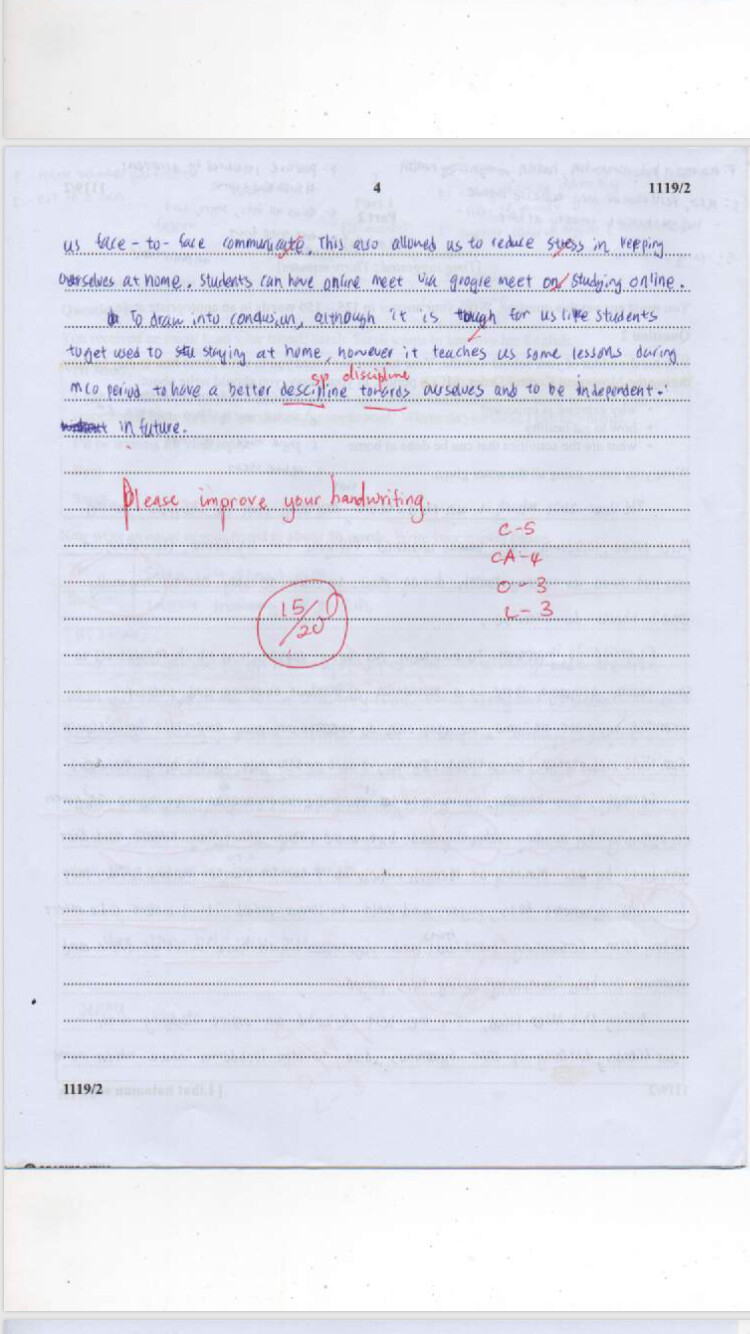 4
1119/2
us face-to-face communicate. This also allowed us to reduce stress in keeping
ourselves at home. Students can have online meet via google meet on studying online.
To draw into conclusion, although it is though for us like students
to get used to staying at home, however it teaches us some lessons during
sp discipline
mco period to have a better descipline towards ourselves and to be independent.
in future.
Please improve your handwriting.
C-5
CA-4
O-3
L-3
15/20
1119/2